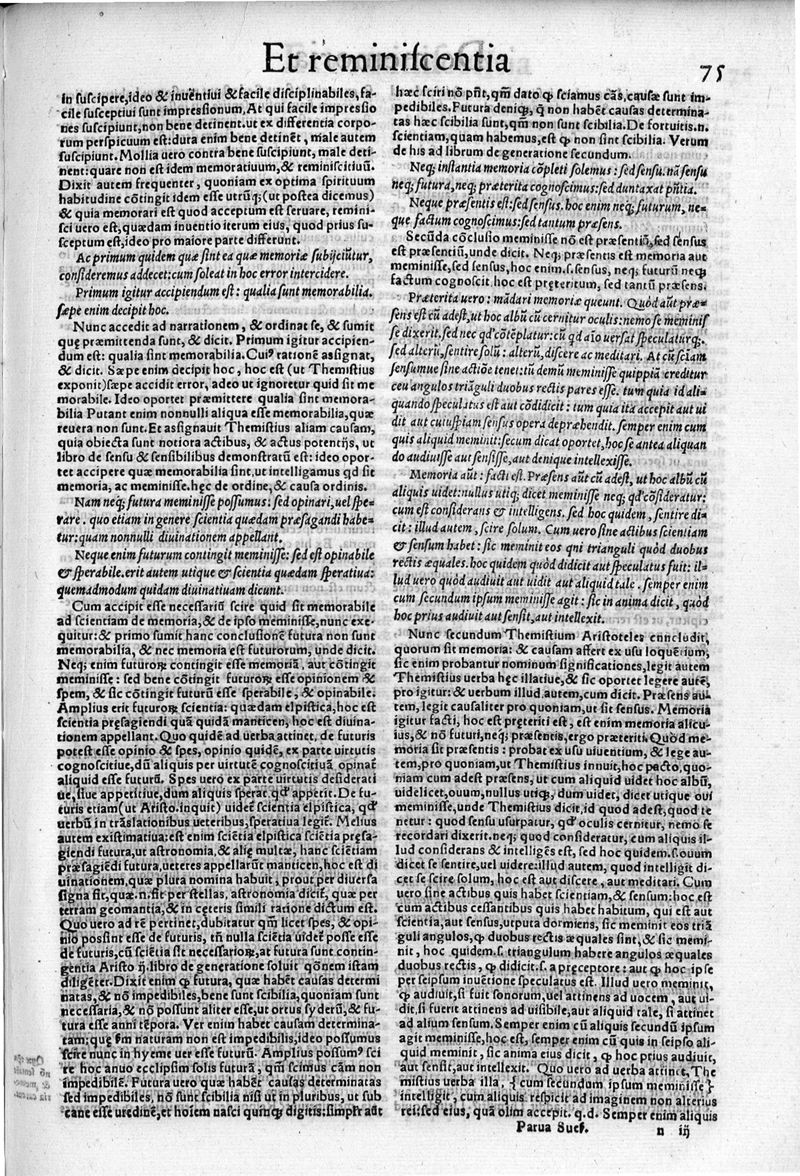 Et reminiscentia
75
in suscipere, ideo & inuẽtiui & facile disciplinabiles, fa-
cile susceptiui sunt impressionum. At qui facile impressio
nes suscipiunt, non bene detinent. ut ex differentia corpo-
rum perspicuum est: dura enim bene detinẽt, male autem
suscipiunt. Mollia uero contra bene suscipiunt, male deti-
nent: quare non est idem memoratiuum, & reminiscitiuũ.
Dixit autem frequenter, quoniam ex optima spirituum
habitudine cõtingit idem esse utrũq; (ut postea dicemus)
& quia memorari est quod acceptum est seruare, remini-
sci uero est, quædam inuentio iterum eius, quod prius su-
sceptum est, ideo pro maiore parte differunt.
Ac primum quidem quæ sint ea quæ memoriæ subijciũtur,
consideremus addecet: cum soleat in hoc error intercidere.
Primum igitur accipiendum est: qualia sunt memorabilia.
sæpe enim decipit hoc.
Nunc accedit ad narrationem, & ordinat se, & sumit
quę præmittenda sunt, & dicit. Primum igitur accipien-
dum est: qualia sint memorabilia. Cuiꝰ rationẽ assignat,
& dicit. Sæpe enim decipit hoc, hoc est (ut Themistius
exponit) sæpe accidit error, adeo ut ignoretur quid sit me
morabile. Ideo oportet præmittere qualia sint memora-
bilia Putant enim nonnulli aliqua esse memorabilia, quæ
reuera non sunt. Et assignauit Themistius aliam causam,
quia obiecta sunt notiora actibus, & actus potentijs, ut
libro de sensu & sensibilibus demonstratũ est: ideo opor-
tet accipere quæ memorabilia sint, ut intelligamus qd sit
memoria, ac meminisse. hęc de ordine, & causa ordinis.
Nam neq; futura meminisse possumus: sed opinari, uel spe-
rare. quo etiam in genere scientia quædam præsagandi habe-
tur: quam nonnulli diuinationem appellant.
Neque enim futurum contingit meminisse: sed est opinabile
& sperabile. erit autem utique & scientia quædam speratiua:
quemadmodum quidam diuinatiuam dicunt.
Cum accipit esse necessariũ scire quid sit memorabile
ad scientiam de memoria, & de ipso meminisse, nunc exe-
quitur: & primo sumit hanc conclusionẽ futura non sunt
memorabilia, & nec memoria est futurorum, unde dicit.
Neq; enim futuroꝝ contingit esse memoriã, aut cõtingit
meminisse: sed bene cõtingit futuroꝝ esse opinionem &
spem, & sic cõtingit futurũ esse sperabile, & opinabile.
Amplius erit futuroꝝ scientia: quædam elpistica, hoc est
scientia pręsagiendi quã quidã manticen, hoc est diuina-
tionem appellant. Quo quidẽ ad uerba attinet, de futuris
potest esse opinio & spes, opinio quidẽ, ex parte uirtutis
cognoscitiuę, dũ aliquis per uirtutẽ cognoscitiuã opinat̃
aliquid esse futurũ. Spes uero ex parte uirtutis desiderati
uę, siue appetitiue, dum aliquis sperat qď apperit. De fu-
turis etiam (ut Aristo. inquit) uidet̃ scientia elpistica, qď
uerbũ in trãslationibus ueteribus, speratiua legit̃. Melius
autem existimatiua: est enim sciẽtia elpistica sciẽtia pręsa-
giendi futura, ut astronomia, & alię multæ, hanc sciẽtiam
præsagiẽdi futura, ueteres appellarũt manticen, hoc est di
uinationem, quæ plura nomina habuit, prout per diuersa
signa fit, quæ. n. fit per stellas, astronomia dicit̃, quæ per
terram geomantia, & in ceteris simili ratione dictum est.
Quo uero ad rẽ pertinet, dubitatur qm̃ licet spes, & opi-
nio possint esse de futuris, tñ nulla sciẽtia uidet̃ posse esse
de futuris, cũ sciẽtia sit necessarioꝝ, at futura sunt contin-
gentia Aristo ij. libro de generatione soluit qõnem istam
diligẽter. Dixit enim ꝙ futura, quæ habẽt causas determi
natas, & nõ impedibiles, bene sunt scibilia, quoniam sunt
necessaria, & nõ possunt aliter esse, ut ortus syderũ, & fu-
tura esse anni tẽpora. Ver enim habet causam determina-
tam; quę s̃m naturam non est impedibilis, ideo possumus
scire nunc in hyeme uer esse futurũ. Amplius possumꝰ sci
re hoc anuo ecclipsim solis futurã, qm̃ scimus cãm non
impedibilẽ. Futura uero quæ habẽt causas determinatas
sed impedibiles, nõ sunt scibilia nisi ut in pluribus, ut sub
cane esse uredinẽ, et hoiem nasci quinq; digitis: simplr̃ aũt
hæc sciri nõ pñt, qm̃ dato ꝙ sciamus cãs, causæ sunt im-
pedibiles. Futura deniq;, q̃ non habẽt causas determina-
tas hæc scibilia sunt, qm̃ non sunt scibilia. De fortuitis. n.
scientiam, quam habemus, est ꝙ non sint scibilia. Verum
de his ad librum de generatione secundum.
Neq; instantia memoria cõpleti solemus: sed sensu. nã sensu
neq; futura, neq; præterita cognoscimus: sed duntaxat pñtia.
Neque præsentis est: sed sensus. hoc enim neq; futurum, ne-
que factum cognoscimus: sed tantum præsens.
Secũda cõclusio meminisse nõ est præsentiũ, sed sensus
est præsentiũ, unde dicit. Neq; præsentis est memoria aut
meminisse, sed sensus, hoc enim. s. sensus, neq; futurũ neq;
factum cognoscit hoc est pręteritum, sed tantũ præsens.
Præterita uero: mãdari memoriæ queunt. Quòd aũt præ-
sens est cũ adest, ut hoc albũ cũ cernitur oculis: nemo se meminis
se dixerit, sed nec qď cõtẽplatur: cũ qd aĩo uersat speculaturq;.
sed alterũ, sentire solũ: alterũ, discere ac meditari. At cũ sciam
sensumue sine actiõe tenet: tũ demũ meminisse quippiã creditur
ceu angulos triãguli duobus rectis pares esse. tum quia id ali-
quando speculatus est aut cõdidicit: tum quia ita accepit aut ui
dit aut cuiuspiam sensus opera depræhendit. semper enim cum
quis aliquid meminit: secum dicat oportet, hoc se antea aliquan
do audiuisse aut sensisse, aut denique intellexisse.
Memoria aũt: facti est. Præsens aũt cũ adest, ut hoc albũ cũ
aliquis uidet: nullus utiq; dicet meminisse neq; qď consideratur:
cum est considerans & intelligens. sed hoc quidem, sentire di-
cit: illud autem, scire solum. Cum uero sine actibus scientiam
& sensum habet: sic meminit eos qni trianguli quòd duobus
rectis æquales. hoc quidem quòd didicit aut speculatus fuit: il-
lud uero quòd audiuit aut uidit aut aliquid tale. semper enim
cum secundum ipsum meminisse agit: sic in anima dicit, quòd
hoc prius audiuit aut sensit, aut intellexit.
Nunc secundum Themistium Aristoteles enncludit,
quorum sit memoria: & causam affert ex usu loquẽtium;
sic enim probantur nominum significationes, legit autem
Themistius uerba hęc illatiue, & sic oportet legere autẽ,
pro igitur: & uerbum illud autem, cum dicit. Præsens au-
tem, legit causaliter pro quoniam, ut sit sensus. Memoria
igitur facti, hoc est pręteriti est, est enim memoria alicu-
ius, & nõ futuri, neq; præsentis, ergo præteriti. Quòd me-
moria sit præsentis: probat ex usu uiuentium, & lege au-
tem, pro quoniam, ut Themistius innuit, hoc pacto, quo-
niam cum adest præsens, ut cum aliquid uidet hoc albũ,
uidelicet, ouum, nullus utiq;, dum uidet, dicet utique oui
meminisse, unde Themistius dicit, id quod adest, quod te
netur: quod sensu usurpatur, qď oculis cernitur, nemo se
recordari dixerit. neq; quod consideratur, cum aliquis il-
lud considerans & intelligẽs est, sed hoc quidem. s. ouum
dicet se sentire, uel uidere: illud autem, quod intelligit di-
cet se scire solum, hoc est aut discere, aut meditari. Cum
uero sine actibus quis habet scientiam, & sensum: hoc est
cum actibus cessantibus quis habet habitum, qui est aut
scientia, aut sensus, utputa dormiens, sic meminit eos triã
guli angulos, ꝙ duobus rectis æquales sint, & sic memi-
nit, hoc quidem. s. triangulum habere angulos æquales
duobus rectis, ꝙ didicit. s. a preceptore: aut ꝙ hoc ipse
per seipsum inuẽtione speculatus est. Illud uero meminit,
ꝙ audiuit, si fuit sonorum, uel attinens ad uocem, aut ui-
dit, si fuerit attinens ad uisibile, aut aliquid tale, si attinet
ad alium sensum. Semper enim cũ aliquis secundũ ipsum
agit meminisse, hoc est, semper enim cũ quis in seipso ali-
quid meminit, sic anima eius dicit, ꝙ hoc prius audiuit,
aut sensit, aut intellexit. Quo uero ad uerba attinet, The
mistius uerba illa, { cum secundum ipsum meminisse }
intelligit, cum aliquis respicit ad imaginem non alterius
rei: sed eius, quã olim accepit. q. d. Semper enim aliquis
Parua Suef.
n iij